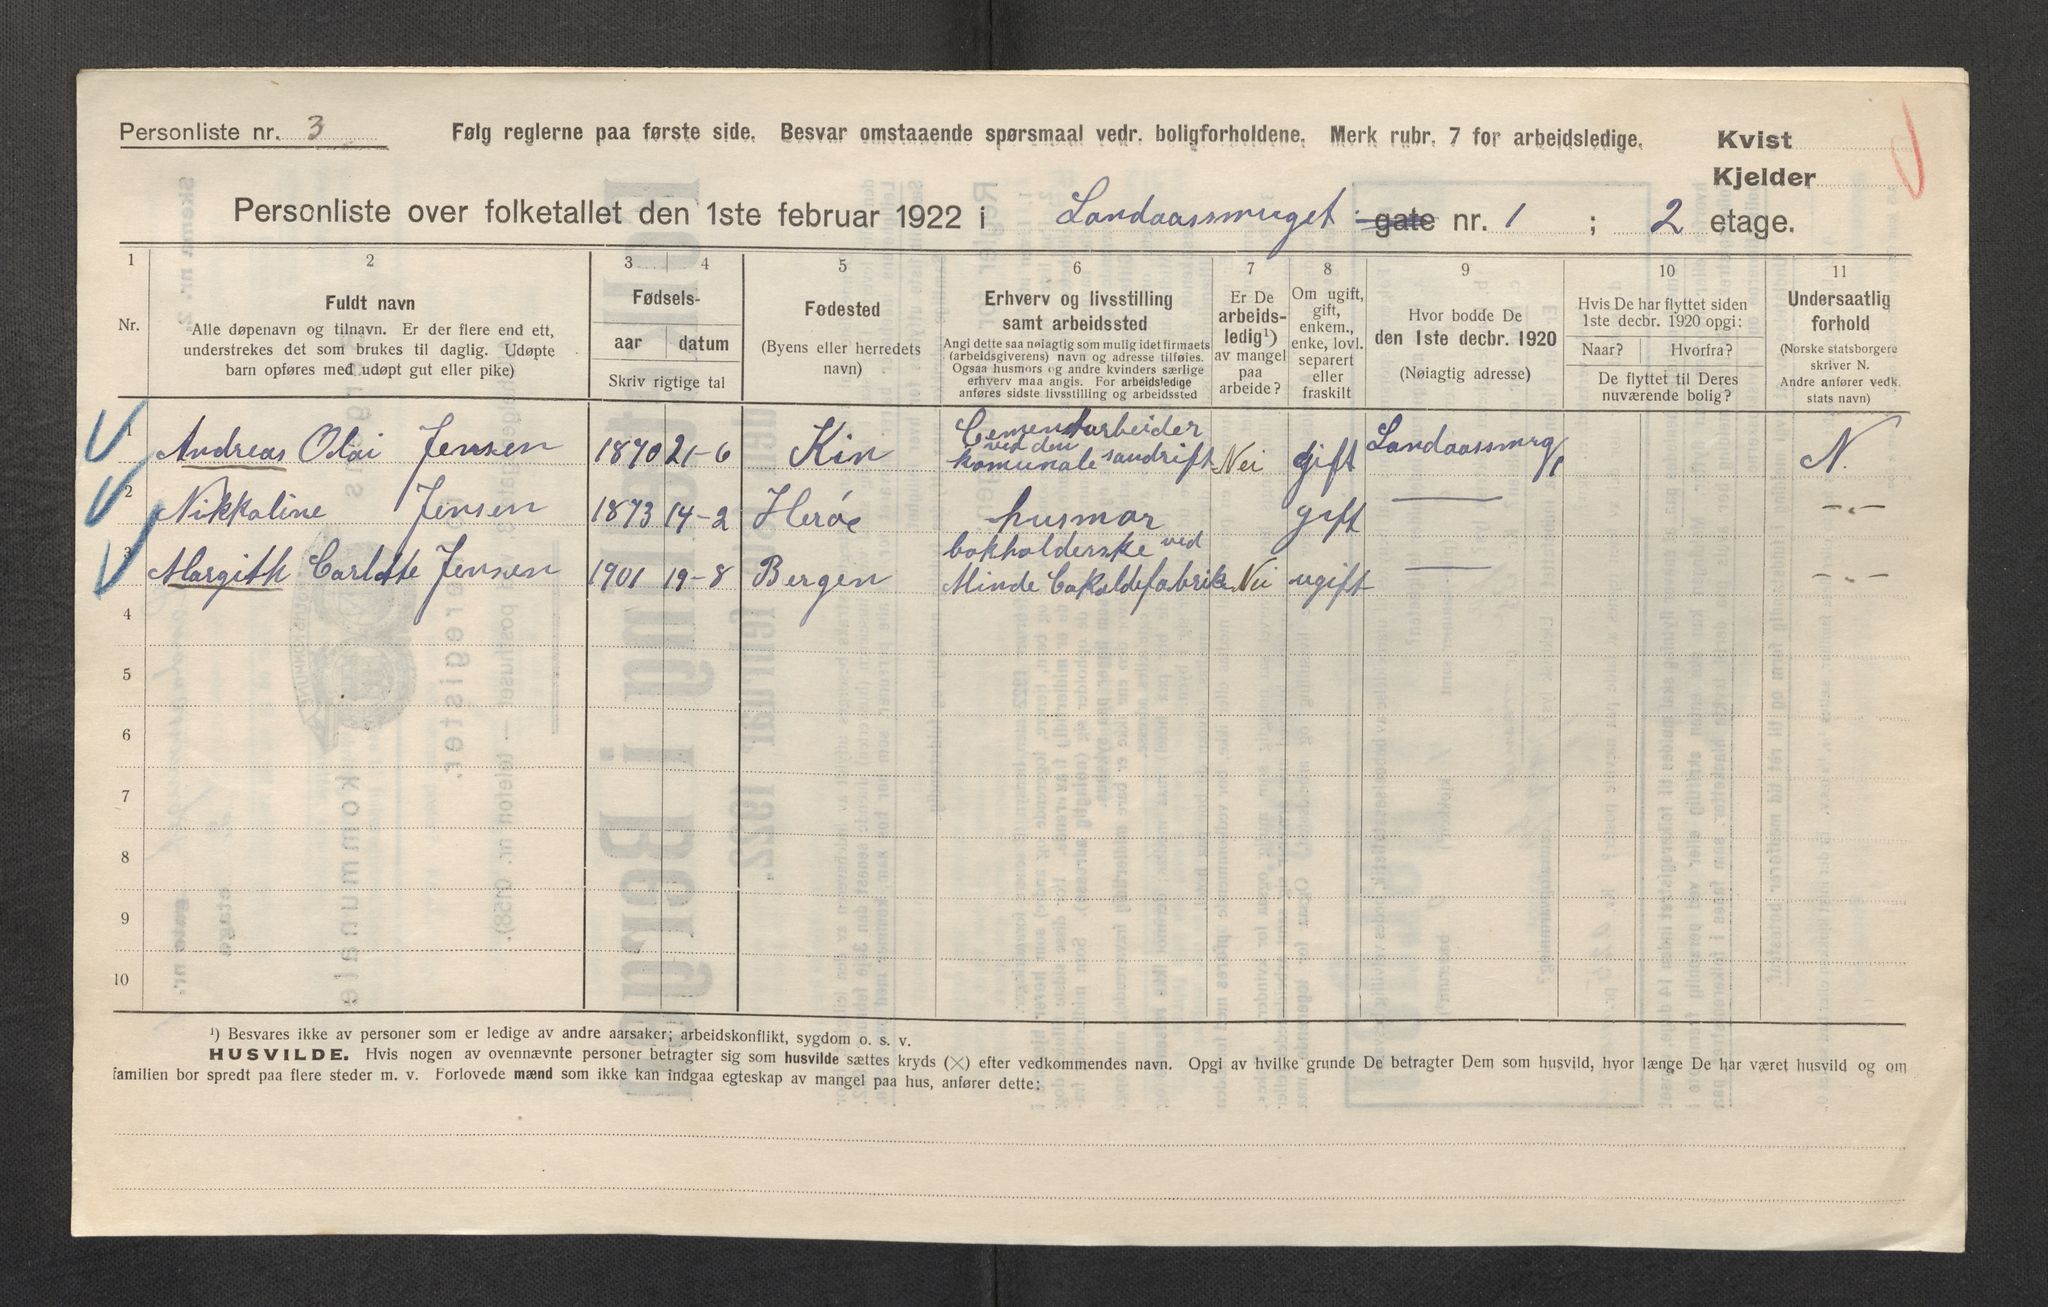 Personliste nr. 3
Følg reglerne paa første side. Besvar omstaaende spørsmaal vedr. boligforholdene. Merk rubr. 7 for arbeidsledige.
Kvist
Kjelder
Personliste over folketallet den 1ste februar 1922 i Landaassmuget gate nr. 1 ; 2 etage.
1 2 3 4 5 6 7 8 9 10 11
Nr.
Fuldt navn
Alle døpenavn og tilnavn. Er der flere end ett,
understrekes det som brukes til daglig. Udøpte
barn opføres med udøpt gut eller pike)
Fødsels-
aar datum
Skriv rigtige tal
Fødested
(Byens eller herredets
navn)
Erhverv og livsstilling
samt arbeidssted
Angi dette saa nøiagtig som mulig idet firmaets
(arbeidsgiverens) navn og adresse tilføies.
Ogsaa husmors og andre kvinders særlige
erhverv maa angis. For arbeidsledige
anføres sidste livsstilling og arbeidssted
Er De
arbeids-
ledig¹)
av mangel
paa
arbeide?
Om ugift,
gift,
enkem.,
enke, lovl.
separert
eller
fraskilt
Hvor bodde De
den 1ste decbr. 1920
(Nøiagtig adresse)
Hvis De har flyttet siden
1ste decbr. 1920 opgi:
Naar? Hvorfra?
De flyttet til Deres
nuværende bolig?
Undersaatlig
forhold
(Norske statsborgere
skriver N.
Andre anfører vedk.
stats navn)
1 Andreas Olai Jensen 1870 21-6 Kin Cementarbeider ved den komunale sandrift Nei gift Landaassmug 1 N.
2 Nikkoline Jensen 1873 14-2 Herøe husmor gift — -„-
3 Margith Carlotte Jensen 1901 19-8 Bergen bokholderske ved Minde Cokoldefabrik Nei ugift — -„-
4
5
6
7
8
9
10
¹) Besvares ikke av personer som er ledige av andre aarsaker; arbeidskonflikt, sygdom o. s. v.
HUSVILDE. Hvis nogen av ovennævnte personer betragter sig som husvilde sættes kryds (×) efter vedkommendes navn. Opgi av hvilke grunde De betragter Dem som husvild, hvor længe De har været husvild og om
familien bor spredt paa flere steder m. v. Forlovede mænd som ikke kan indgaa egteskap av mangel paa hus, anfører dette: